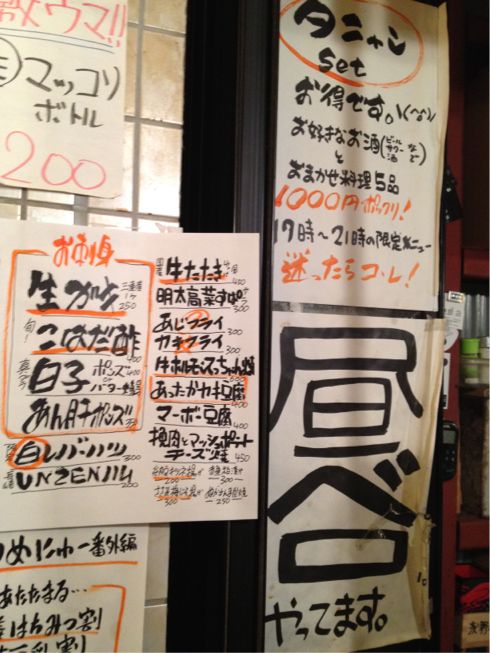 ウマ!!
マッコリ
ボトル
200
お刺身
生ガキ
三重産
1ケ
250
旬!
こはだ酢
400
白子
ポンズ
or
バター
400
あん肝ポンズ
白レバハツ
300
UNZENJIU
200
牛たたき
400
明太高菜すぱ
300
あじフライ
300
カキフライ
300
牛ホルモンてっちゃん焼
あったかカキ豆腐
400
マーボー豆腐
400
挽肉とマッシュポテト
チーズ焼
450
200
300
300
250
めにゅー番外編
あたたまる…
はちみつ割
割
タニャン
set
お得です。\(^^)/
お好きなお酒(ビール サワー 酒 など)
と
おまかせ料理5品
1000円ポックリ!
17時〜21時の限定メニュー
迷ったらコレ!
昼ベロ
やってます。